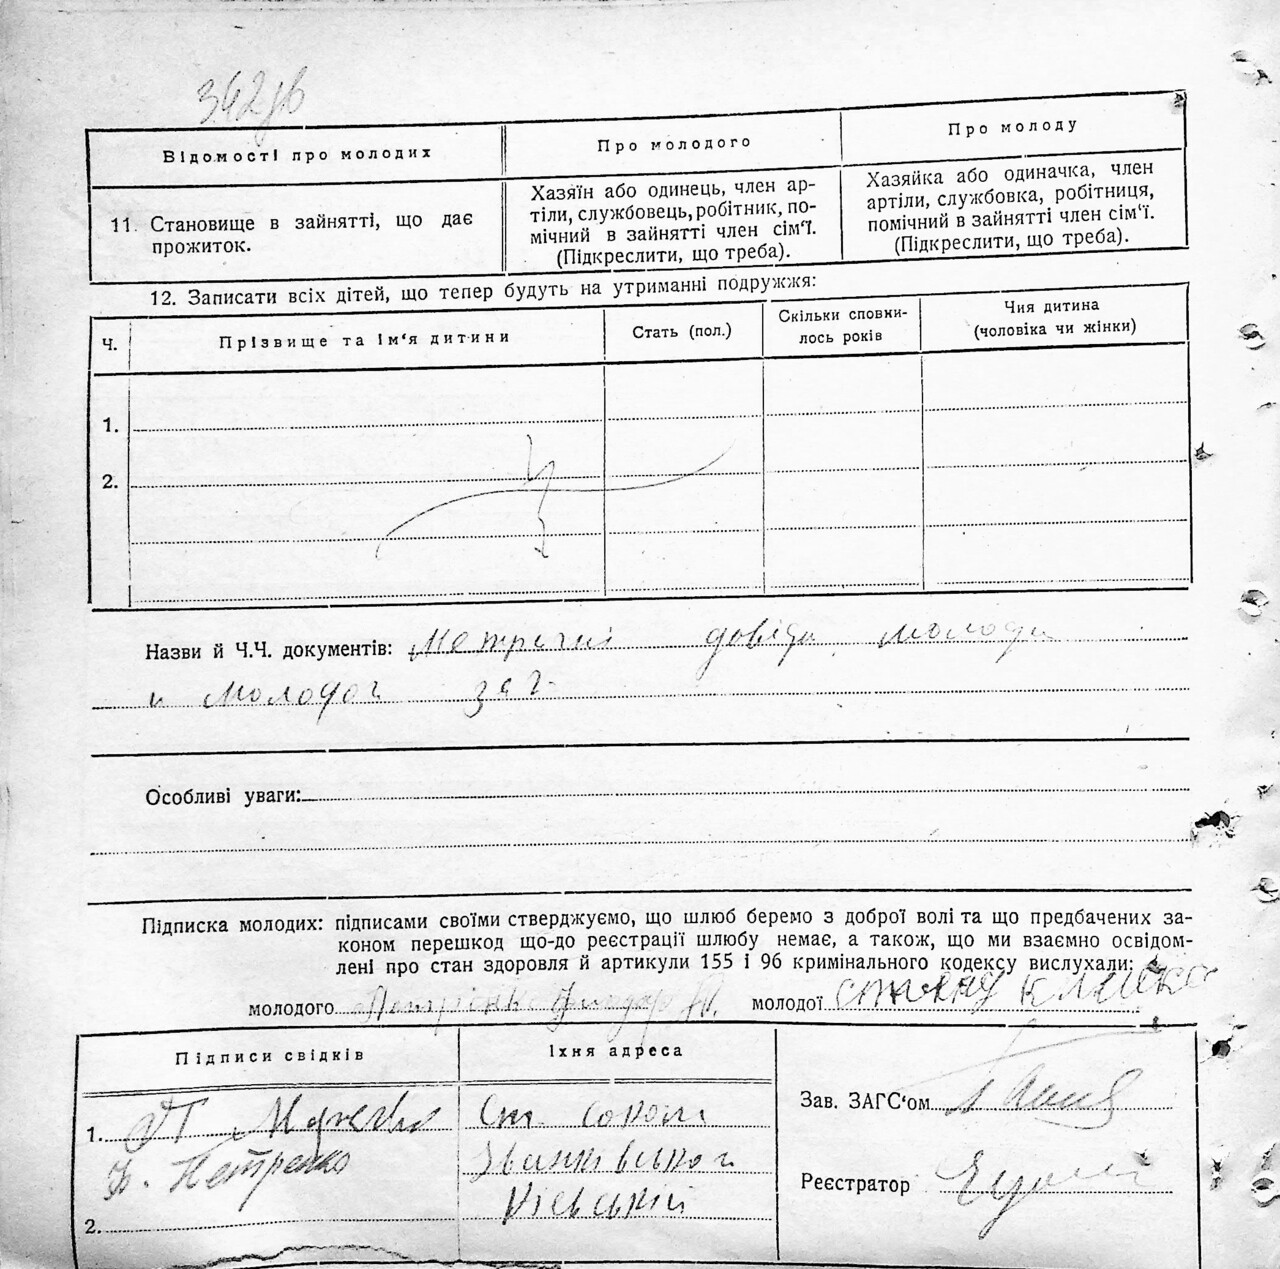 342 зв
Відомості про молодих
Про молодого
Про молоду
11. Становище в зайнятті, що дає
прожиток.
Хазяїн або одинець, член ар-
тіли, службовець, робітник, по-
мічний в зайнятті член сім'ї.
(Підкреслити, що треба).
Хазяйка або одиначка, член
артіли, службовка, робітниця,
помічний в зайнятті член сім'ї.
(Підкреслити, що треба).
12. Записати всіх дітей, що тепер будуть на утриманні подружжя:
Ч.
Прізвище та ім'я дитини
Стать (пол.)
Скільки сповни-
лось років
Чия дитина
(чоловіка чи жінки)
1.
2.
Назви й Ч.Ч. документів: Метричні довідки молоди
и молодог
Особливі уваги:
Підписка молодих: підписами своїми стверджуємо, що шлюб беремо з доброї волі та що предбачених за-
коном перешкод що-до реєстрації шлюбу немає, а також, що ми взаємно освідом-
лені про стан здоровля й артикули 155 і 96 кримінального кодексу вислухали:
молодого молодої
Підписи свідків
Їхня адреса
1.
Ф. Петренко
2.
Ст.
Київській
Зав. ЗАГС'ом
Реєстратор